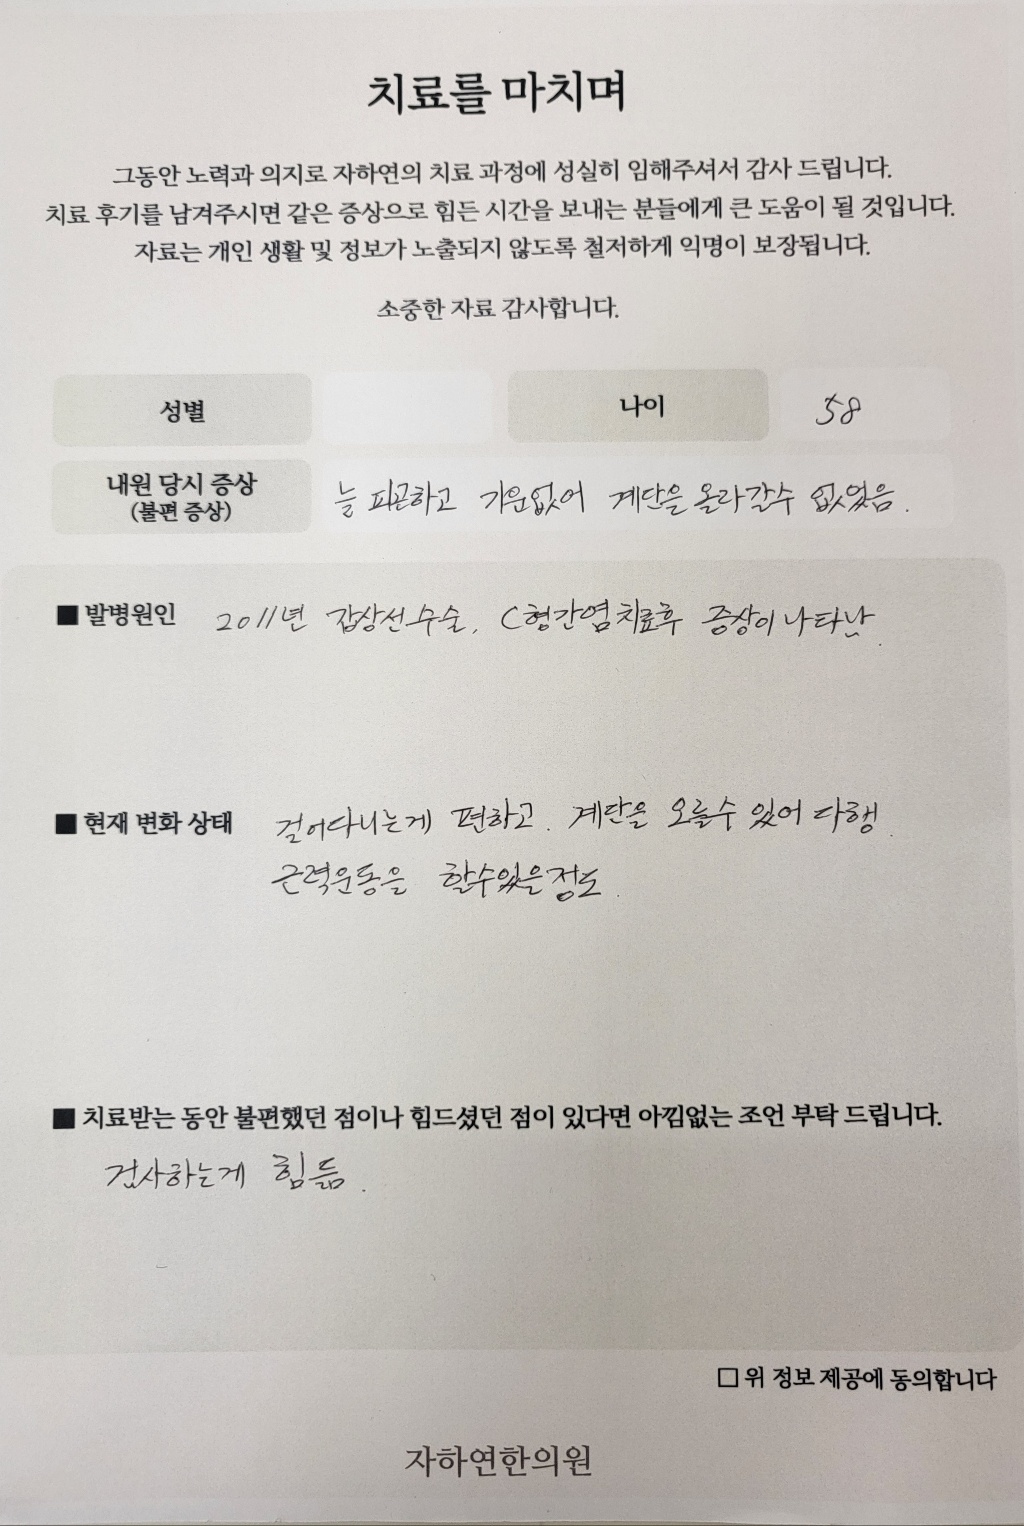 치료를 마치며
그동안 노력과 의지로 자하연의 치료 과정에 성실히 임해주셔서 감사 드립니다.
치료 후기를 남겨주시면 같은 증상으로 힘든 시간을 보내는 분들에게 큰 도움이 될 것입니다.
자료는 개인 생활 및 정보가 노출되지 않도록 철저하게 익명이 보장됩니다.
소중한 자료 감사합니다.
성별 나이 58
내원 당시 증상
(불편 증상)
늘 피곤하고 기운없어 계단을 올라갈수 없었음.
■ 발병원인 2011년 갑상선수술, C형간염치료후 증상이 나타남.
■ 현재 변화 상태 걸어다니는게 편하고. 계단을 오를수 있어 다행.
근력운동을 할수있을정도.
■ 치료받는 동안 불편했던 점이나 힘드셨던 점이 있다면 아낌없는 조언 부탁 드립니다.
검사하는게 힘듦.
□ 위 정보 제공에 동의합니다
자하연한의원